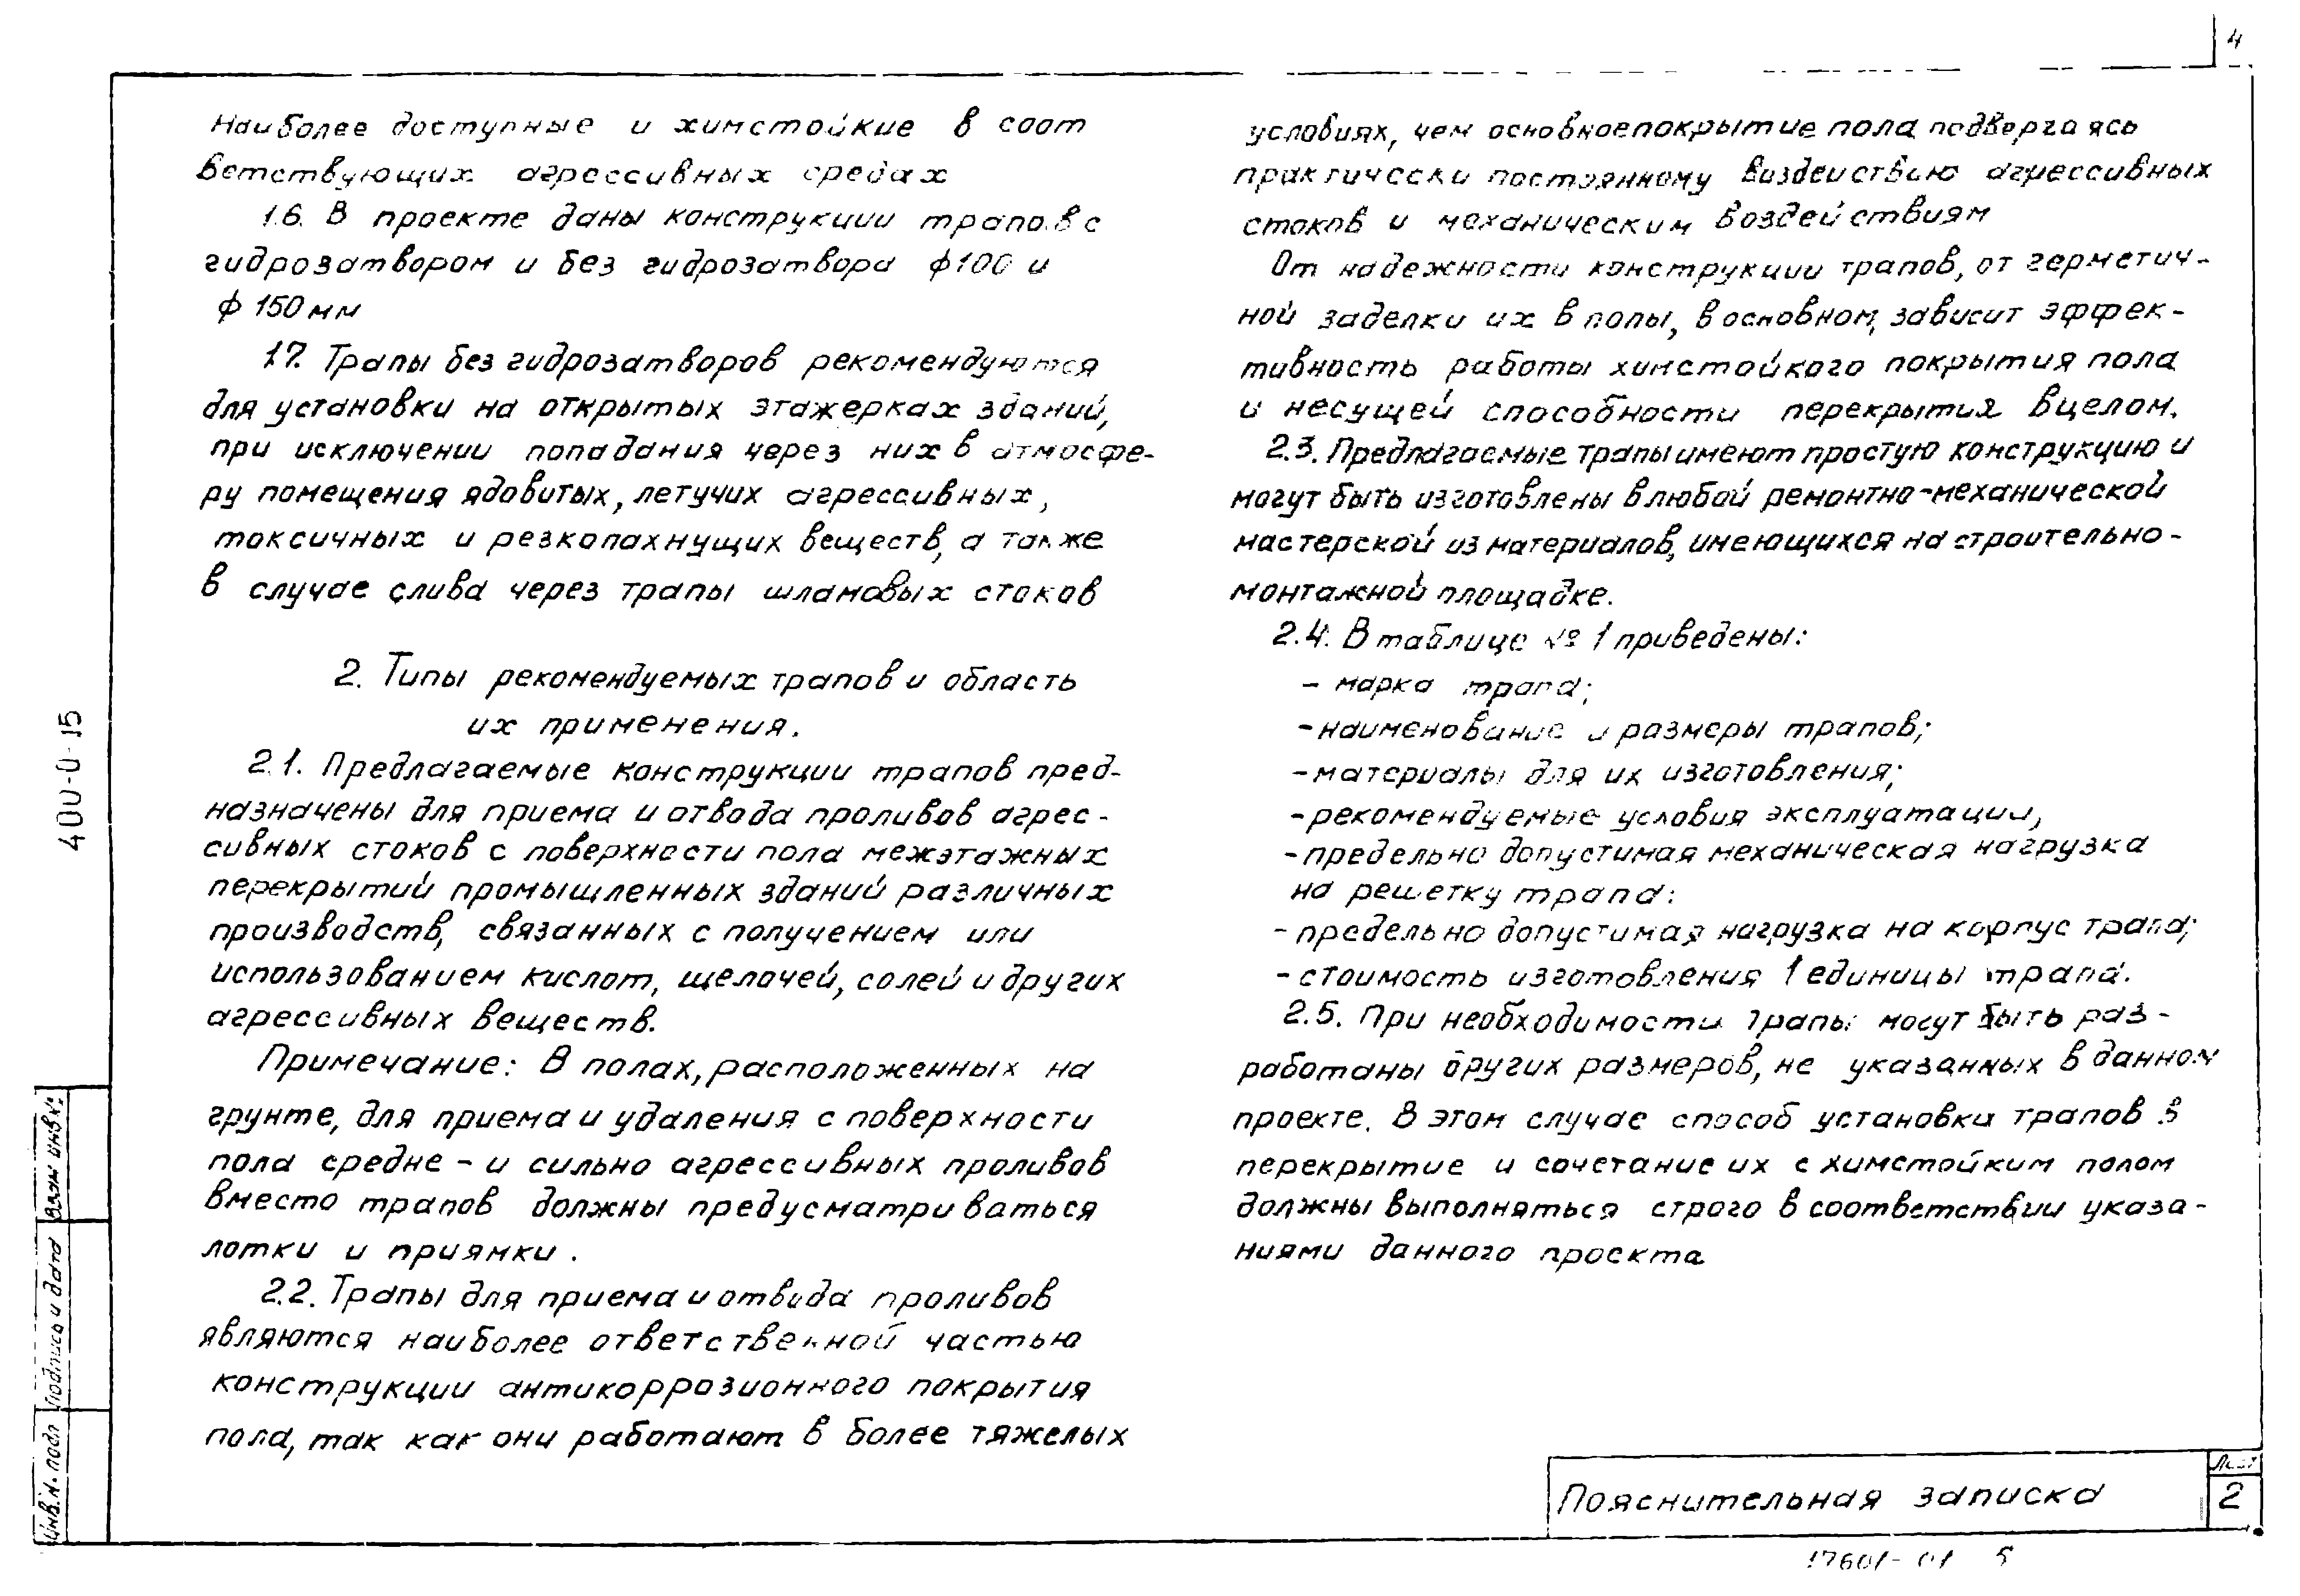 4
Наиболее доступные и химстойкие в соот
ветствующих агрессивных средах
1.6. В проекте даны конструкции трапов с
гидрозатвором и без гидрозатвора ф100 и
ф 150 мм
1.7. Трапы без гидрозатворов рекомендуются
для установки на открытых этажерках зданий,
при исключении попадания через них в атмосфе-
ру помещения ядовитых, летучих агрессивных,
токсичных и резкопахнущих веществ, а также
в случае слива через трапы шламовых стоков
2. Типы рекомендуемых трапов и область
их применения.
2.1. Предлагаемые конструкции трапов пред-
назначены для приема и отвода проливов агрес-
сивных стоков с поверхности пола межэтажных
перекрытий промышленных зданий различных
производств, связанных с получением или
использованием кислот, щелочей, солей и других
агрессивных веществ.
Примечание: В полах, расположенных на
грунте, для приема и удаления с поверхности
пола средне - и сильно агрессивных проливов
вместо трапов должны предусматриваться
лотки и приямки.
2.2. Трапы для приема и отвода проливов
являются наиболее ответственной частью
конструкции антикоррозионного покрытия
пола, так как они работают в более тяжелых
условиях, чем основное покрытие пола подвергаясь
практически постоянному воздействию агрессивных
стоков и механическим воздействиям
От надежности конструкции трапов, от герметич-
ной заделки их в полы, в основном, зависит эффек-
тивность работы химстойкого покрытия пола
и несущей способности перекрытия вцелом.
2.3. Предлагаемые трапы имеют простую конструкцию и
могут быть изготовлены в любой ремонтно-механической
мастерской из материалов, имеющихся на строительно-
монтажной площадке.
2.4. В таблице № 1 приведены:
- марка трапа;
- наименование и размеры трапов;
- материалы для их изготовления;
- рекомендуемые условия эксплуатации,
- предельно допустимая механическая нагрузка
на решетку трапа:
- предельно допустимая нагрузка на корпус трапа;
- стоимость изготовления 1 единицы трапа.
2.5. При необходимости трапы могут быть раз-
работаны других размеров, не указанных в данном
проекте. В этом случае способ установки трапов в
перекрытие и сочетание их с химстойким полом
должны выполняться строго в соответствии указа-
ниями данного проекта
400-0-15
Взам инв.№
Подпись и дата
Инв. № подл
Пояснительная записка
Лист
2
17601-01 5